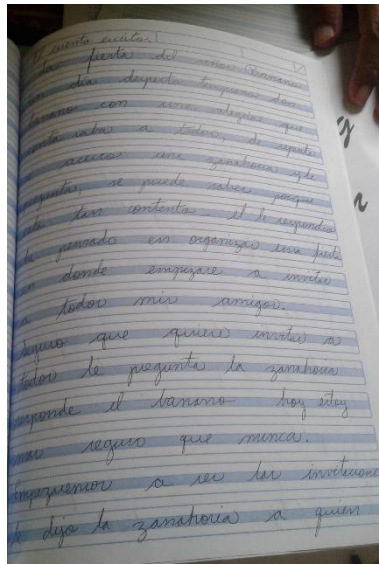 El cuento escrito.
La fiesta del señor Banano
un día despecto temprano don
banano con una alegría que
conta iaba a todos, de repente
acerco una zanahoria y le
pregunta, se puede saber porque
esta tan contento el le respondio
he pensado en organizar una fiesta
en donde empezare a invitar
a todos mis amigos.
Seguro que quiere invitar a
todos le pregunta la zanahoria
responde el banano hoy estoy
mas seguro que nunca.
empezaremos a ser las invitaciones
le dijo la zanahoria a quien